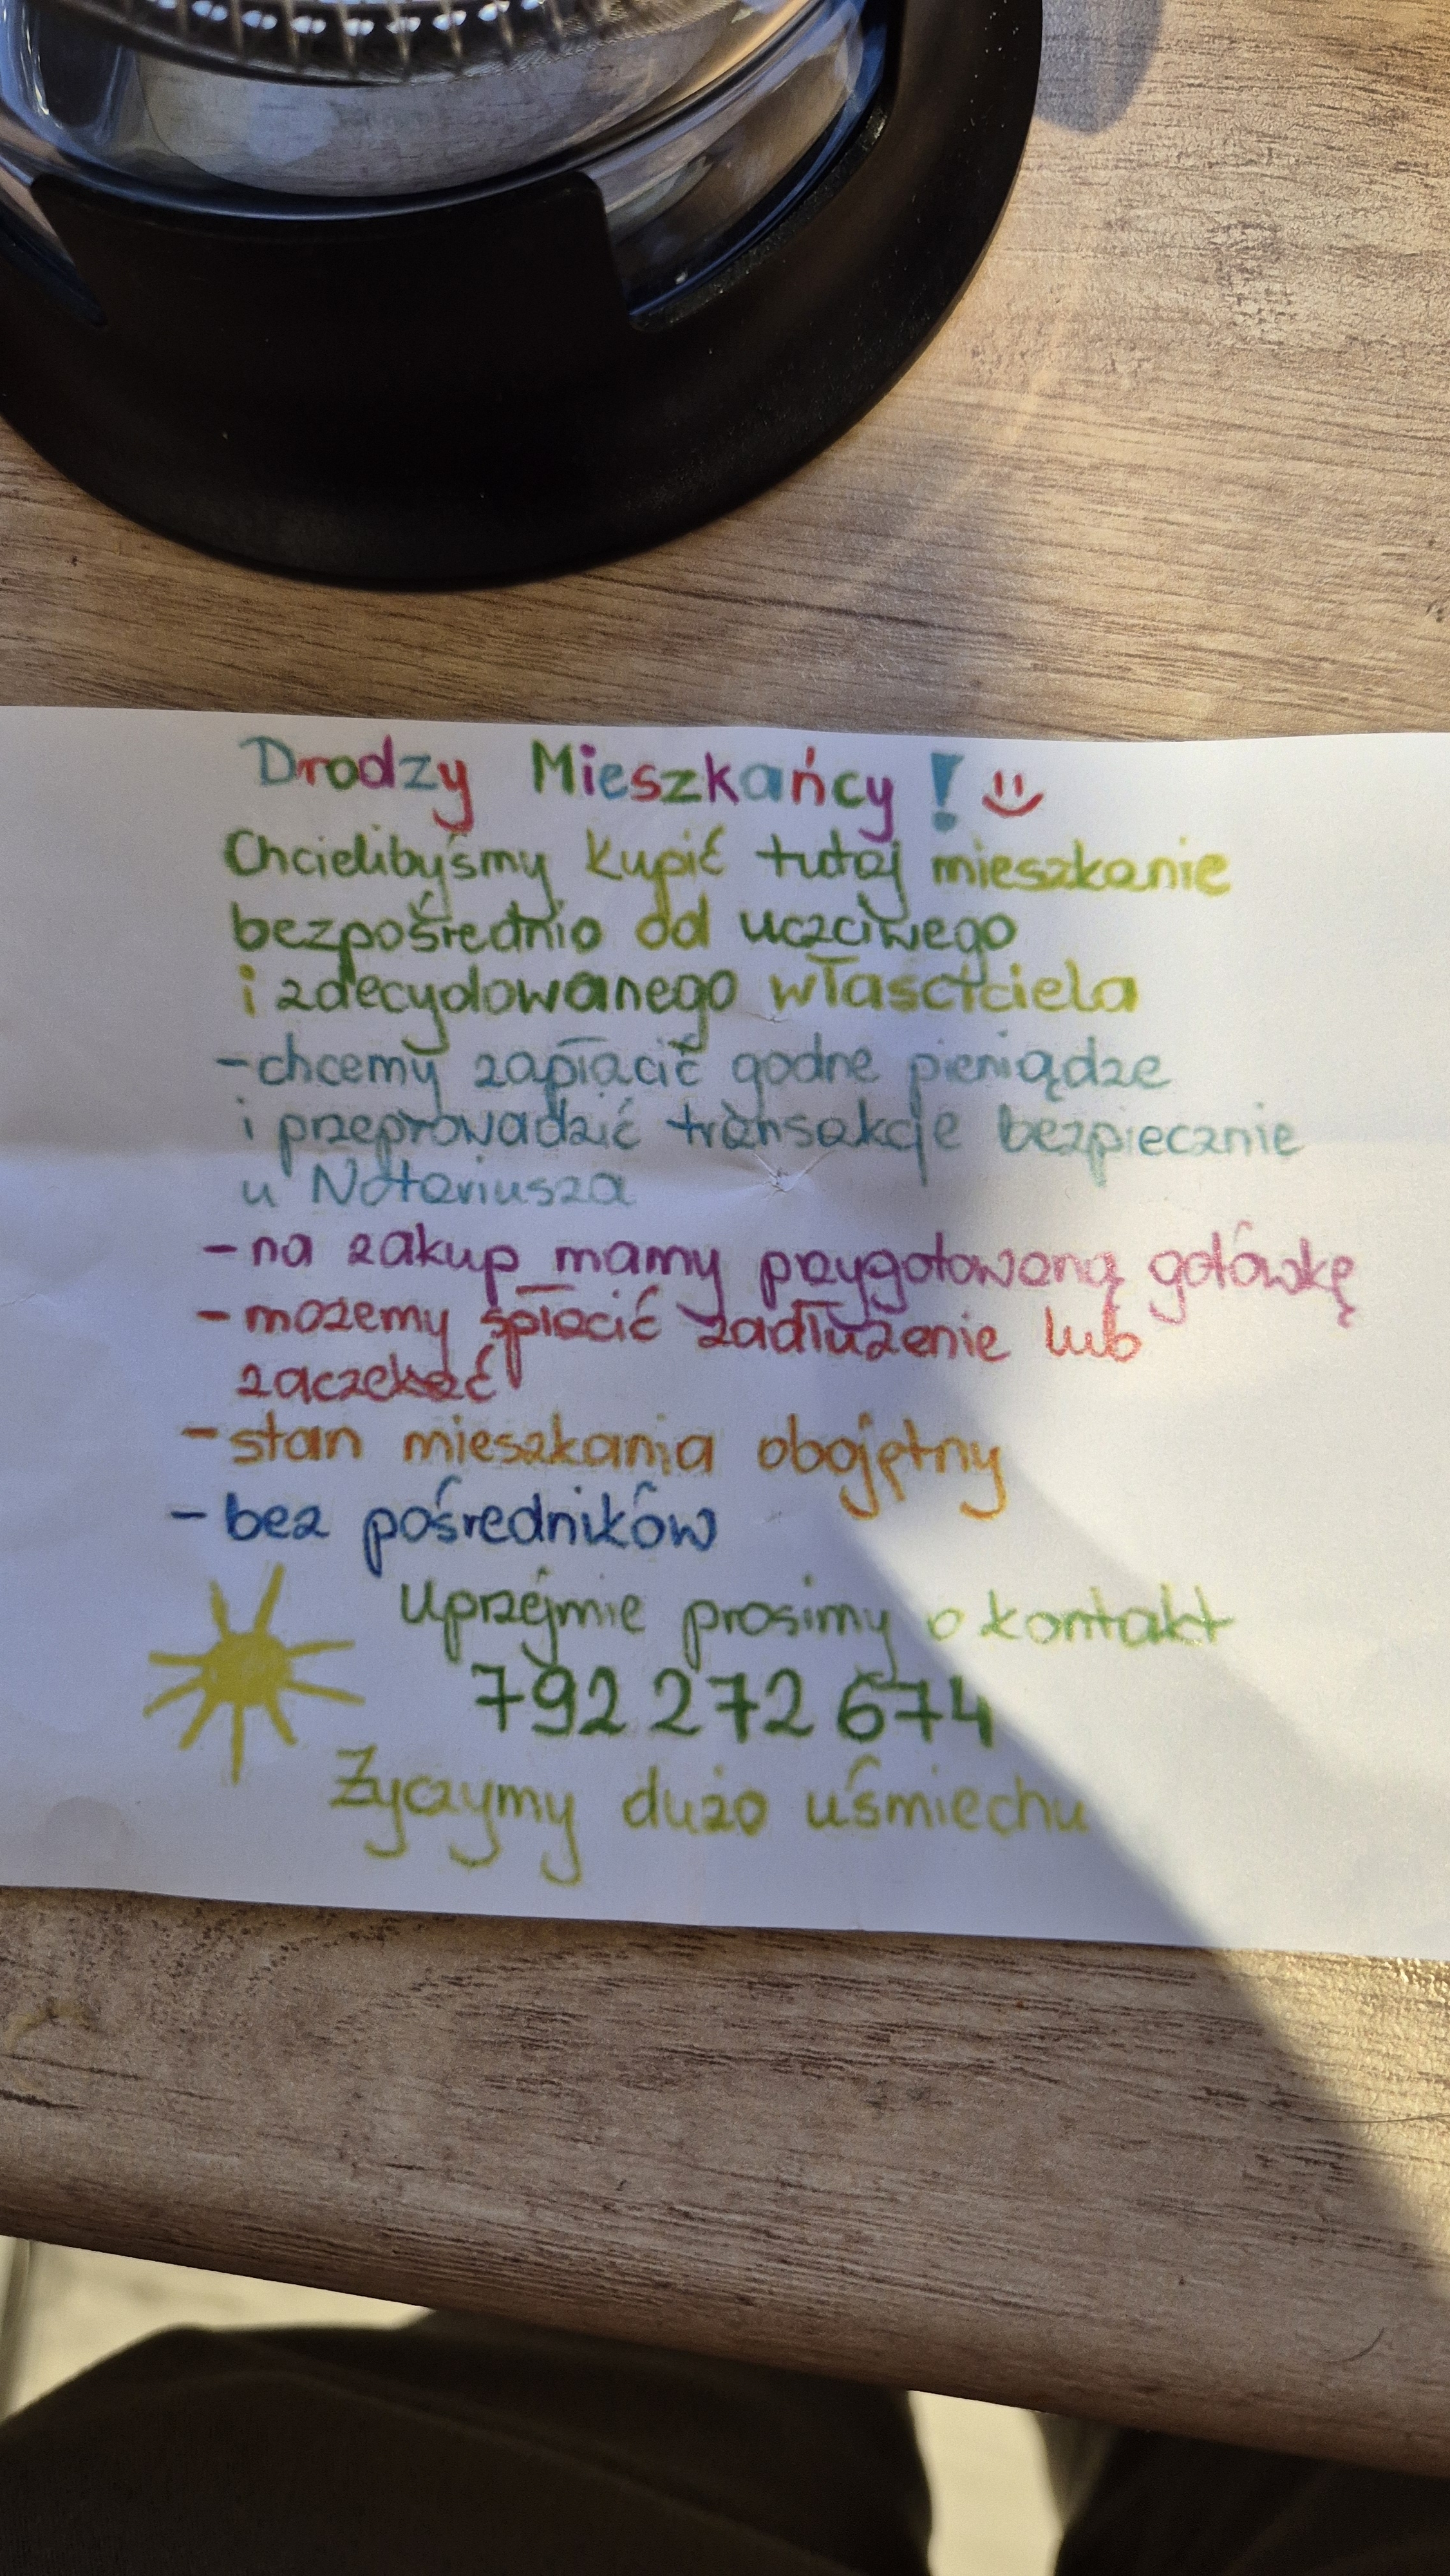 Drodzy Mieszkańcy !
Chcielibyśmy kupić tutaj mieszkanie
bezpośrednio od uczciwego
i zdecydowanego właściciela
- chcemy zapłacić godne pieniądze
i przeprowadzić transakcje bezpiecznie
u Notariusza
- na zakup mamy przygotowaną gotówkę
- możemy spłacić zadłużenie lub
zaczekać
- stan mieszkania obojętny
- bez pośredników
Uprzejmie prosimy o kontakt
792 272 674
Życzymy dużo uśmiechu